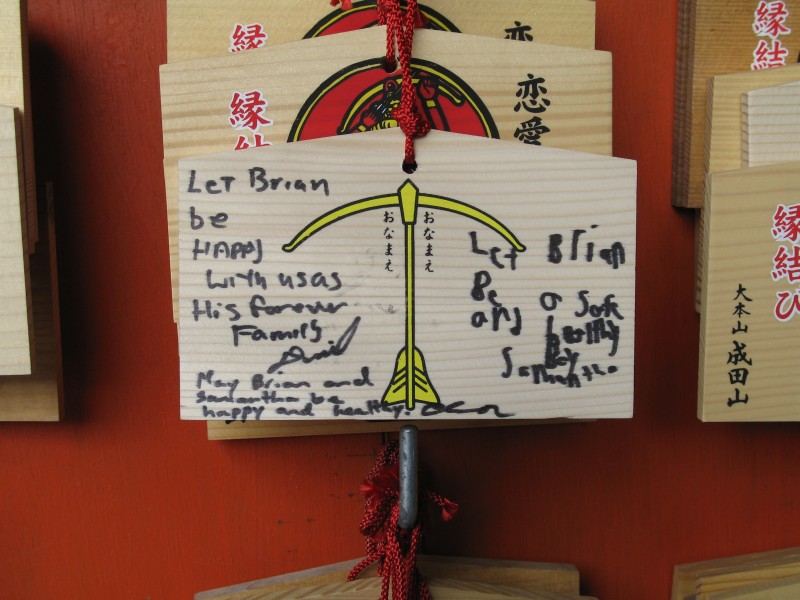 縁
恋
縁結
恋愛
Let Brian
be
HAPPY
with us as
His forever
Family
May Brian and
Samantha be
happy and healthy.
おなまえ
おなまえ
Let Brian
Be a Safe
and healthy
Boy
Samantha
縁結
縁結び
大本山 成田山